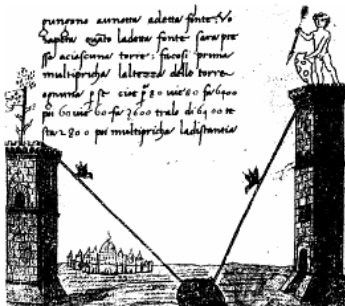 pungono aunotta adetta fonte. Vo
sapere quāto ladetta fonte sara pre
sso aciascuna torre: facosi prima
multipricha laltezza delle torre
ognuna p se cioe p 80 vie 80 fa 6400
poi 60 vie 60 fa 3600 tralo di 6400 re
sta 2800 poi multipricha ladistantia